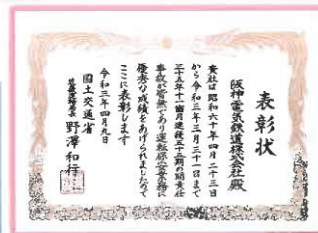 表彰状
阪神電気鉄道株式会社殿
貴社は昭和六十年四月二十三日
から令和三年三月三十一日まで
三十五年十一箇月連続五十五期の間責任
事故が皆無であり運転保安業務に
優秀な成績をあげられましたので
ここに表彰します
令和三年四月九日
国土交通省
近畿運輸局長 野澤和行